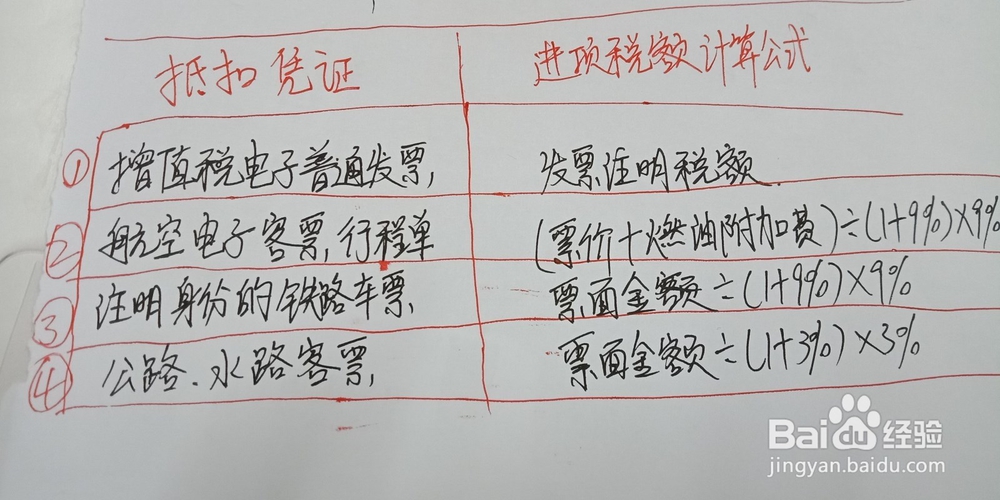 抵扣凭证 进项税额计算公式
① 增值税电子普通发票 发票注明税额
② 航空电子客票行程单 (票价+燃油附加费)÷(1+9%)×9%
③ 注明身份的铁路车票 票面金额÷(1+9%)×9%
④ 公路、水路客票 票面金额÷(1+3%)×3%
Baidu经验
jingyan.baidu.com